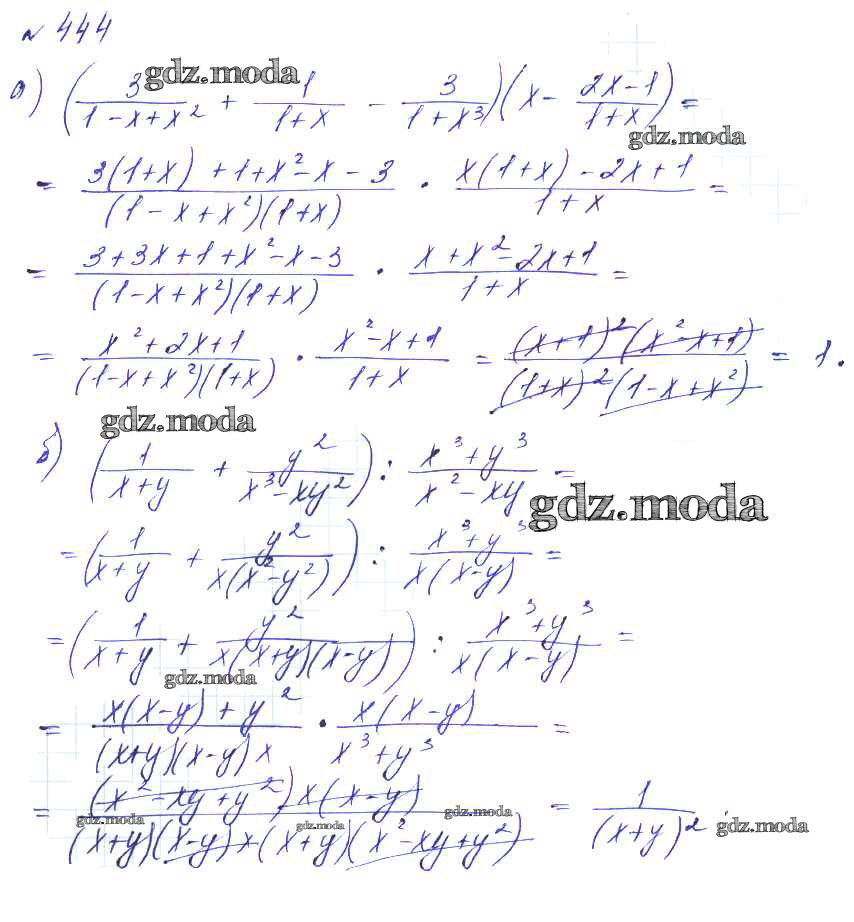 № 444
а) (3/(1-x+x²) + 1/(1+x) - 3/(1+x³))(x - (2x-1)/(1+x)) =
= (3(1+x)+1+x²-x-3)/((1-x+x²)(1+x)) · (x(1+x)-2x+1)/(1+x) =
= (3+3x+1+x²-x-3)/((1-x+x²)(1+x)) · (x+x²-2x+1)/(1+x) =
= (x²+2x+1)/((1-x+x²)(1+x)) · (x²-x+1)/(1+x) = ((x+1)²(x²-x+1))/((1+x)²(1-x+x²)) = 1.
б) (1/(x+y) + y²/(x³-xy²)) : (x³+y³)/(x²-xy) =
= (1/(x+y) + y²/(x(x²-y²))) : (x³+y³)/(x(x-y)) =
= (1/(x+y) + y²/(x(x+y)(x-y))) : (x³+y³)/(x(x-y)) =
= (x(x-y)+y²)/((x+y)(x-y)x) · (x(x-y))/(x³+y³) =
= ((x²-xy+y²)x(x-y))/((x+y)(x-y)x(x+y)(x²-xy+y²)) = 1/(x+y)².
gdz.moda
gdz.moda
gdz.moda
gdz.moda
gdz.moda
gdz.moda
gdz.moda
gdz.moda
gdz.moda